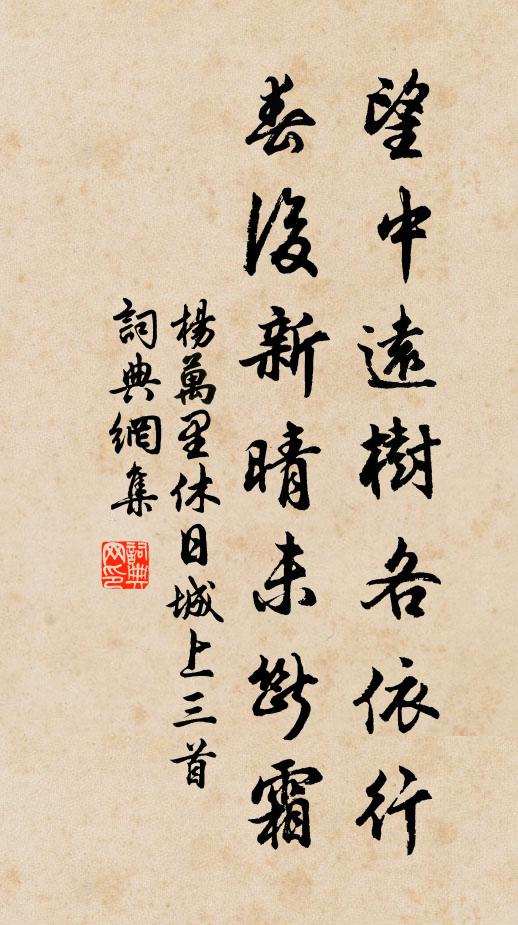 望中遠樹各依行
春後新晴未斷霜
楊萬里休日城上三首
詞典網集
詞典
网印